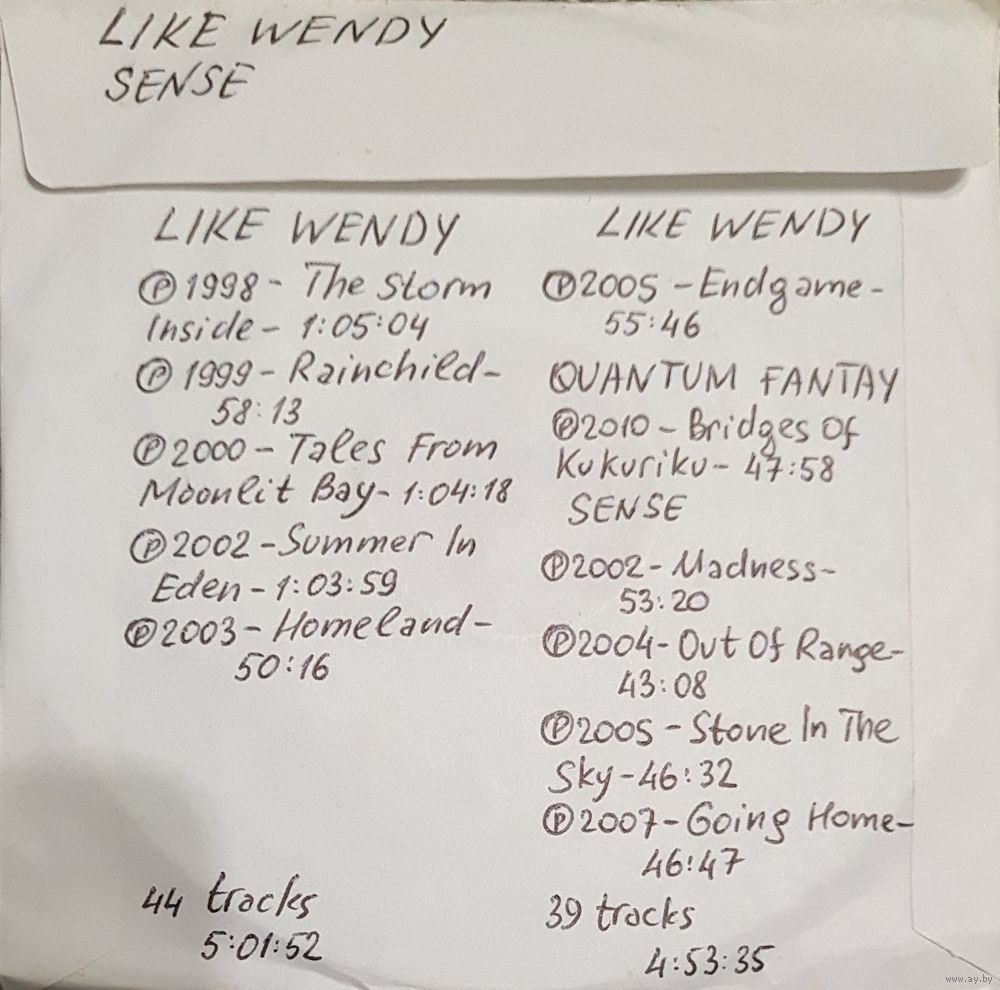 LIKE WENDY
SENSE
LIKE WENDY
Ⓟ1998 - The Storm
Inside - 1:05:04
Ⓟ 1999 - Rainchild -
58:13
Ⓟ2000 - Tales From
Moonlit Bay - 1:04:18
Ⓟ2002 - Summer In
Eden - 1:03:59
Ⓟ2003 - Homeland -
50:16
44 tracks
5:01:52
LIKE WENDY
Ⓟ2005 - Endgame -
55:46
QUANTUM FANTAY
Ⓟ2010 - Bridges Of
Kukuriku - 47:58
SENSE
Ⓟ2002 - Madness -
53:20
Ⓟ2004 - Out Of Range -
43:08
Ⓟ2005 - Stone In The
Sky - 46:32
Ⓟ2007 - Going Home -
46:47
39 tracks
4:53:35
www.ay.by